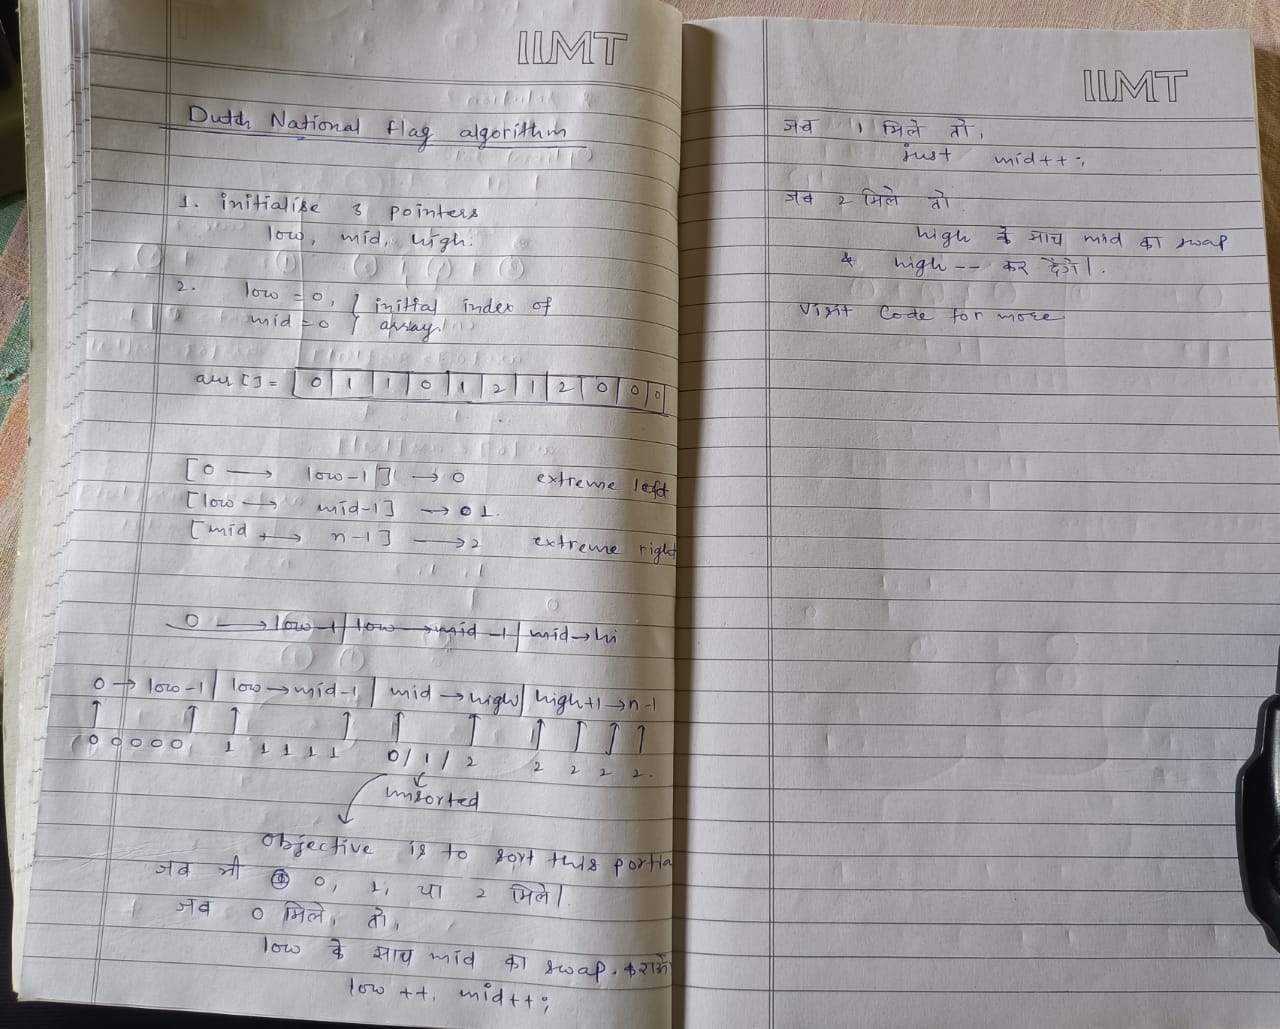 IIMT
Dutch National flag algorithm
1. initialise 3 pointers
low, mid, high.
2. low = 0, } initial index of
mid = 0 } array
arr [] = 0 1 1 0 1 2 1 2 0 0 0
[0 → low-1] → 0 extreme left
[low → mid-1] → 1.
[mid → n-1] → 2 extreme right
0 → low-1 | low → mid-1 | mid → hi
0 → low-1 | low → mid-1 | mid → high | high+1 → n-1
0 0 0 0 0 1 1 1 1 1 0/1/2 2 2 2 2.
unsorted
objective is to sort this portio
जब भी 0, 1, या 2 मिले।
जब 0 मिले, तो,
low के साथ mid का swap. कराओ
low ++, mid++;
IIMT
जब 1 मिले तो,
just mid++;
जब 2 मिले तो
high के साथ mid का swap
& high -- कर देंगे।.
Visit Code for more